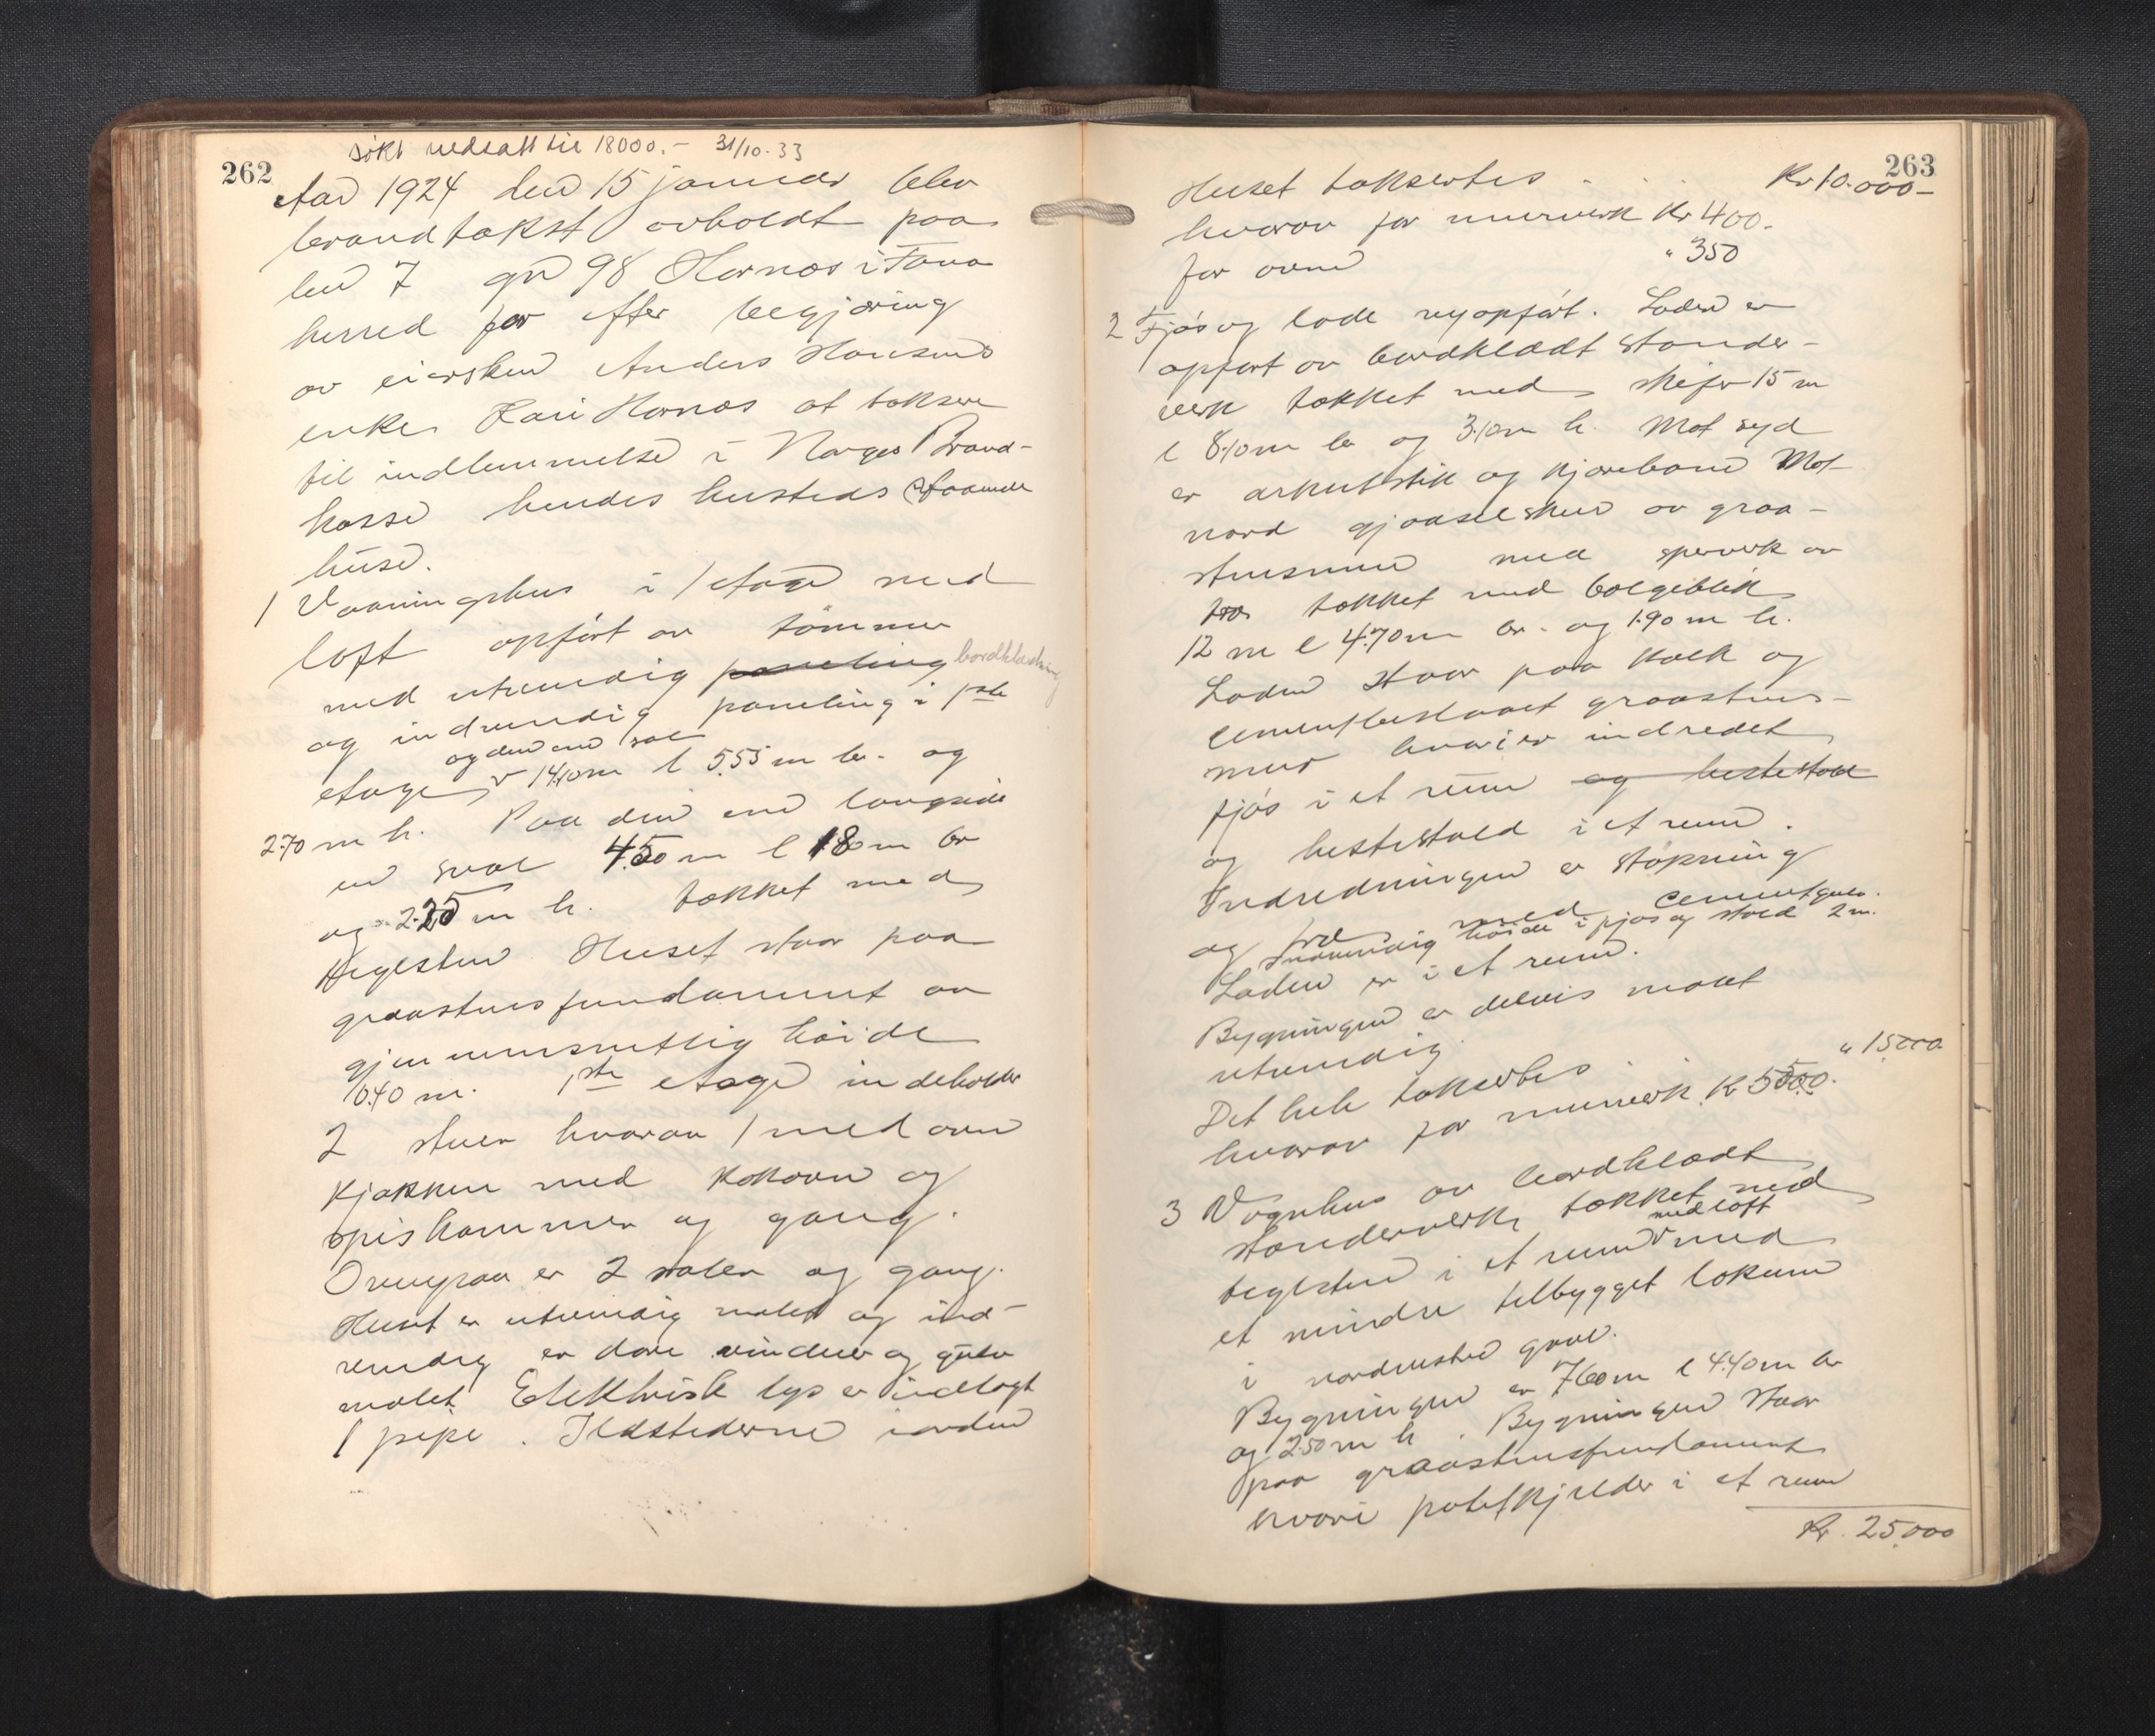 262
søkt nedsatt til 18000.- 31/10-33
Aar 1924 den 15 januar blev
brandtakst avholdt paa
bn 7 gn 98 Hornæs i Fana
herred for efter begjæring
av eiersken Anders Hansens
enke Kari Hornæs at taksere
til indlemmelse i Norges Brand-
kasse hendes husteds staaende
huse.
1 Vaaningshus i 1 etage med
loft opført av tømmer
med utvendig paneling bordklædning
og indvendig paneling i 1ste
etage og den ene sval
14.10 m l 5.55 m br. og
2.70 m h. Paa den ene langside
en sval 4.50 m l 1.80 m br
og 2.25 m h. tækket med
teglsten Huset staar paa
graastensfundament av
gjennemsnitlig høide
0.40 m. 1ste etage indeholder
2 stuer hvorav 1 med ovn
kjøkken med kokovn og
spiskammer og gang.
Ovenpaa er 2 saler og gang.
Huset er utvendig malet og ind-
vendig er døre vinduer og gulv
malet Elektrisk lys er indlagt
1 pipe. Ildstederne i orden
263
Huset takseres . . . Kr 10.000-
hvorav for murverk Kr 400.
for ovne " 350
2 Fjøs og lade nyopført. Laden er
opført av bordklædt stander-
verk tækket med skifer 15 m
l 8.10 m br og 3.10 m h. Mot syd
er arkutstik og kjørebane Mot
nord gjødselskur av graa-
stensmur med sperverk av
træ tækket med bølgeblik
12 m l 4.70 m br. og 1.90 m h.
Laden staar paa kalk og
cementbeslaaet graastens-
mur hvori er indredet
fjøs i et rum og hestestald
og hestestald i et rum.
Indredningen er støpning
og træ med cementgulv.
Indvendig høide i fjøs og stald 2 m.
Laden er i et rum.
Bygningen er delvis malet
utvendig
Det hele takseres . . " 15000
hvorav for murverk Kr 5500.
3 Vognhus av bordklædt
standerverk tækket med
teglsten i et rum med loft med
et mindre tilbygget lokum
i nordvestre gavl.
Bygningen er 7.60 m l 4.40 m br
og 2.50 m h. Bygningen staar
paa graastensfundament
hvori potetkjelder i et rum
Kr. 25.000